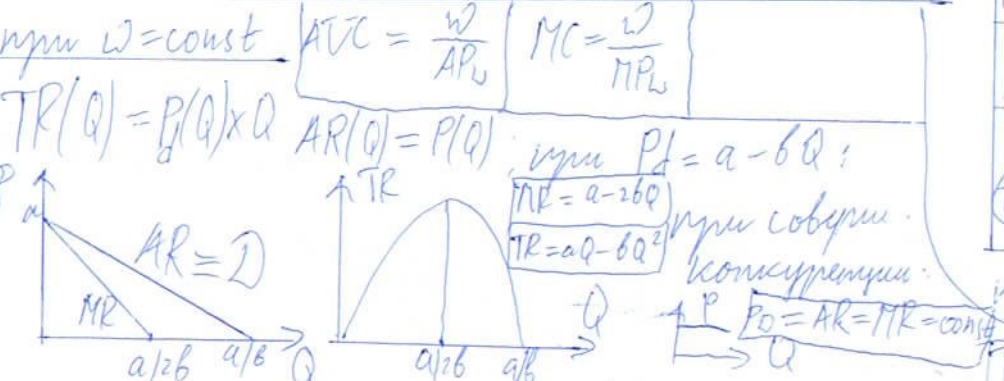 при w=const
AVC = w/AP_L
MC = w/MP_L
TR(Q) = P_d(Q)×Q
AR(Q) = P(Q); при Pd = a-bQ:
MR = a-2bQ
TR = aQ-bQ²
при соверш.
конкуренции:
P_D = AR = MR = const
P
a
AR = D
MR
a/2b
a/b
Q
TR
a/2b
a/b
Q
P
Q